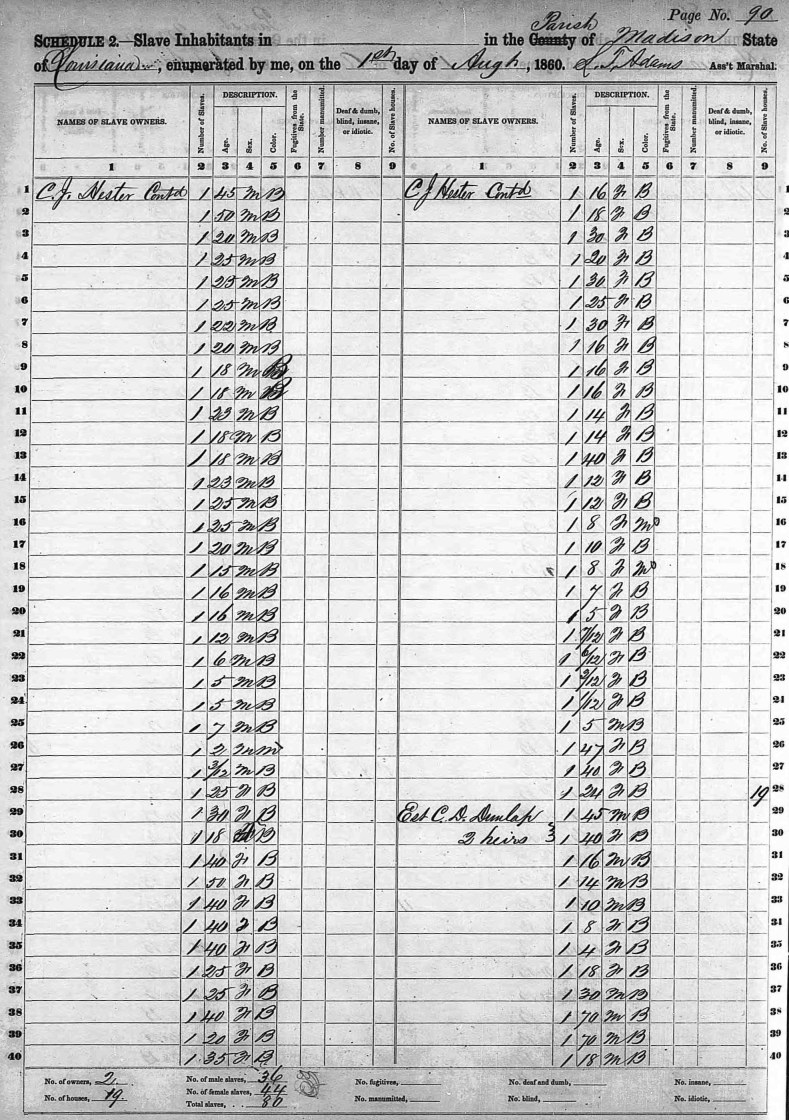 Page No. 90
SCHEDULE 2.—Slave Inhabitants in in the County Parish of Madison State
of Louisiana, enumerated by me, on the 1st day of Augh, 1860. L. T. Adams Ass't Marshal.
NAMES OF SLAVE OWNERS. Number of Slaves. DESCRIPTION. Age. Sex. Color. Fugitives from the State. Number manumitted. Deaf & dumb, blind, insane, or idiotic. No. of Slave houses. NAMES OF SLAVE OWNERS. Number of Slaves. DESCRIPTION. Age. Sex. Color. Fugitives from the State. Number manumitted. Deaf & dumb, blind, insane, or idiotic. No. of Slave houses.
1 2 3 4 5 6 7 8 9 1 2 3 4 5 6 7 8 9
1 C. J. Hester Contd 1 45 M B C J Hester Contd 1 16 F B 1
2 1 50 M B 1 18 F B 2
3 1 20 M B 1 30 F B 3
4 1 25 M B 1 20 F B 4
5 1 25 M B 1 30 F B 5
6 1 25 M B 1 25 F B 6
7 1 22 M B 1 30 F B 7
8 1 20 M B 1 16 F B 8
9 1 18 M B 1 16 F B 9
10 1 18 M B 1 16 F B 10
11 1 23 M B 1 14 F B 11
12 1 18 M B 1 14 F B 12
13 1 18 M B 1 40 F B 13
14 1 23 M B 1 12 F B 14
15 1 25 M B 1 12 F B 15
16 1 25 M B 1 8 F M 16
17 1 20 M B 1 10 F B 17
18 1 15 M B 1 8 F M 18
19 1 16 M B 1 7 F B 19
20 1 16 M B 1 5 F B 20
21 1 12 M B 1 F B 21
22 1 6 M B 1 6/12 F B 22
23 1 5 M B 1 F B 23
24 1 5 M B 1 1/12 F B 24
25 1 7 M B 1 5 M B 25
26 1 2 M M 1 47 F B 26
27 1 3/12 M B 1 40 F B 27
28 1 25 F B 1 24 F B 19 28
29 1 30 F B Est C. D. Dunlap 1 45 M B 29
30 1 18 B 2 heirs 1 40 F B 30
31 1 40 F B 1 16 M B 31
32 1 50 F B 1 14 M B 32
33 1 40 F B 1 10 M B 33
34 1 40 F B 1 8 F B 34
35 1 40 F B 1 4 F B 35
36 1 25 F B 1 18 F B 36
37 1 25 F B 1 30 M B 37
38 1 40 F B 1 70 M B 38
39 1 20 F B 1 70 M B 39
40 1 35 F B 1 18 M B 40
No. of owners, 2 No. of male slaves, 36 No. fugitives, No. deaf and dumb, No. insane,
No. of houses, 19 No. of female slaves, 44 No. manumitted, No. blind, No. idiotic,
Total slaves, 80